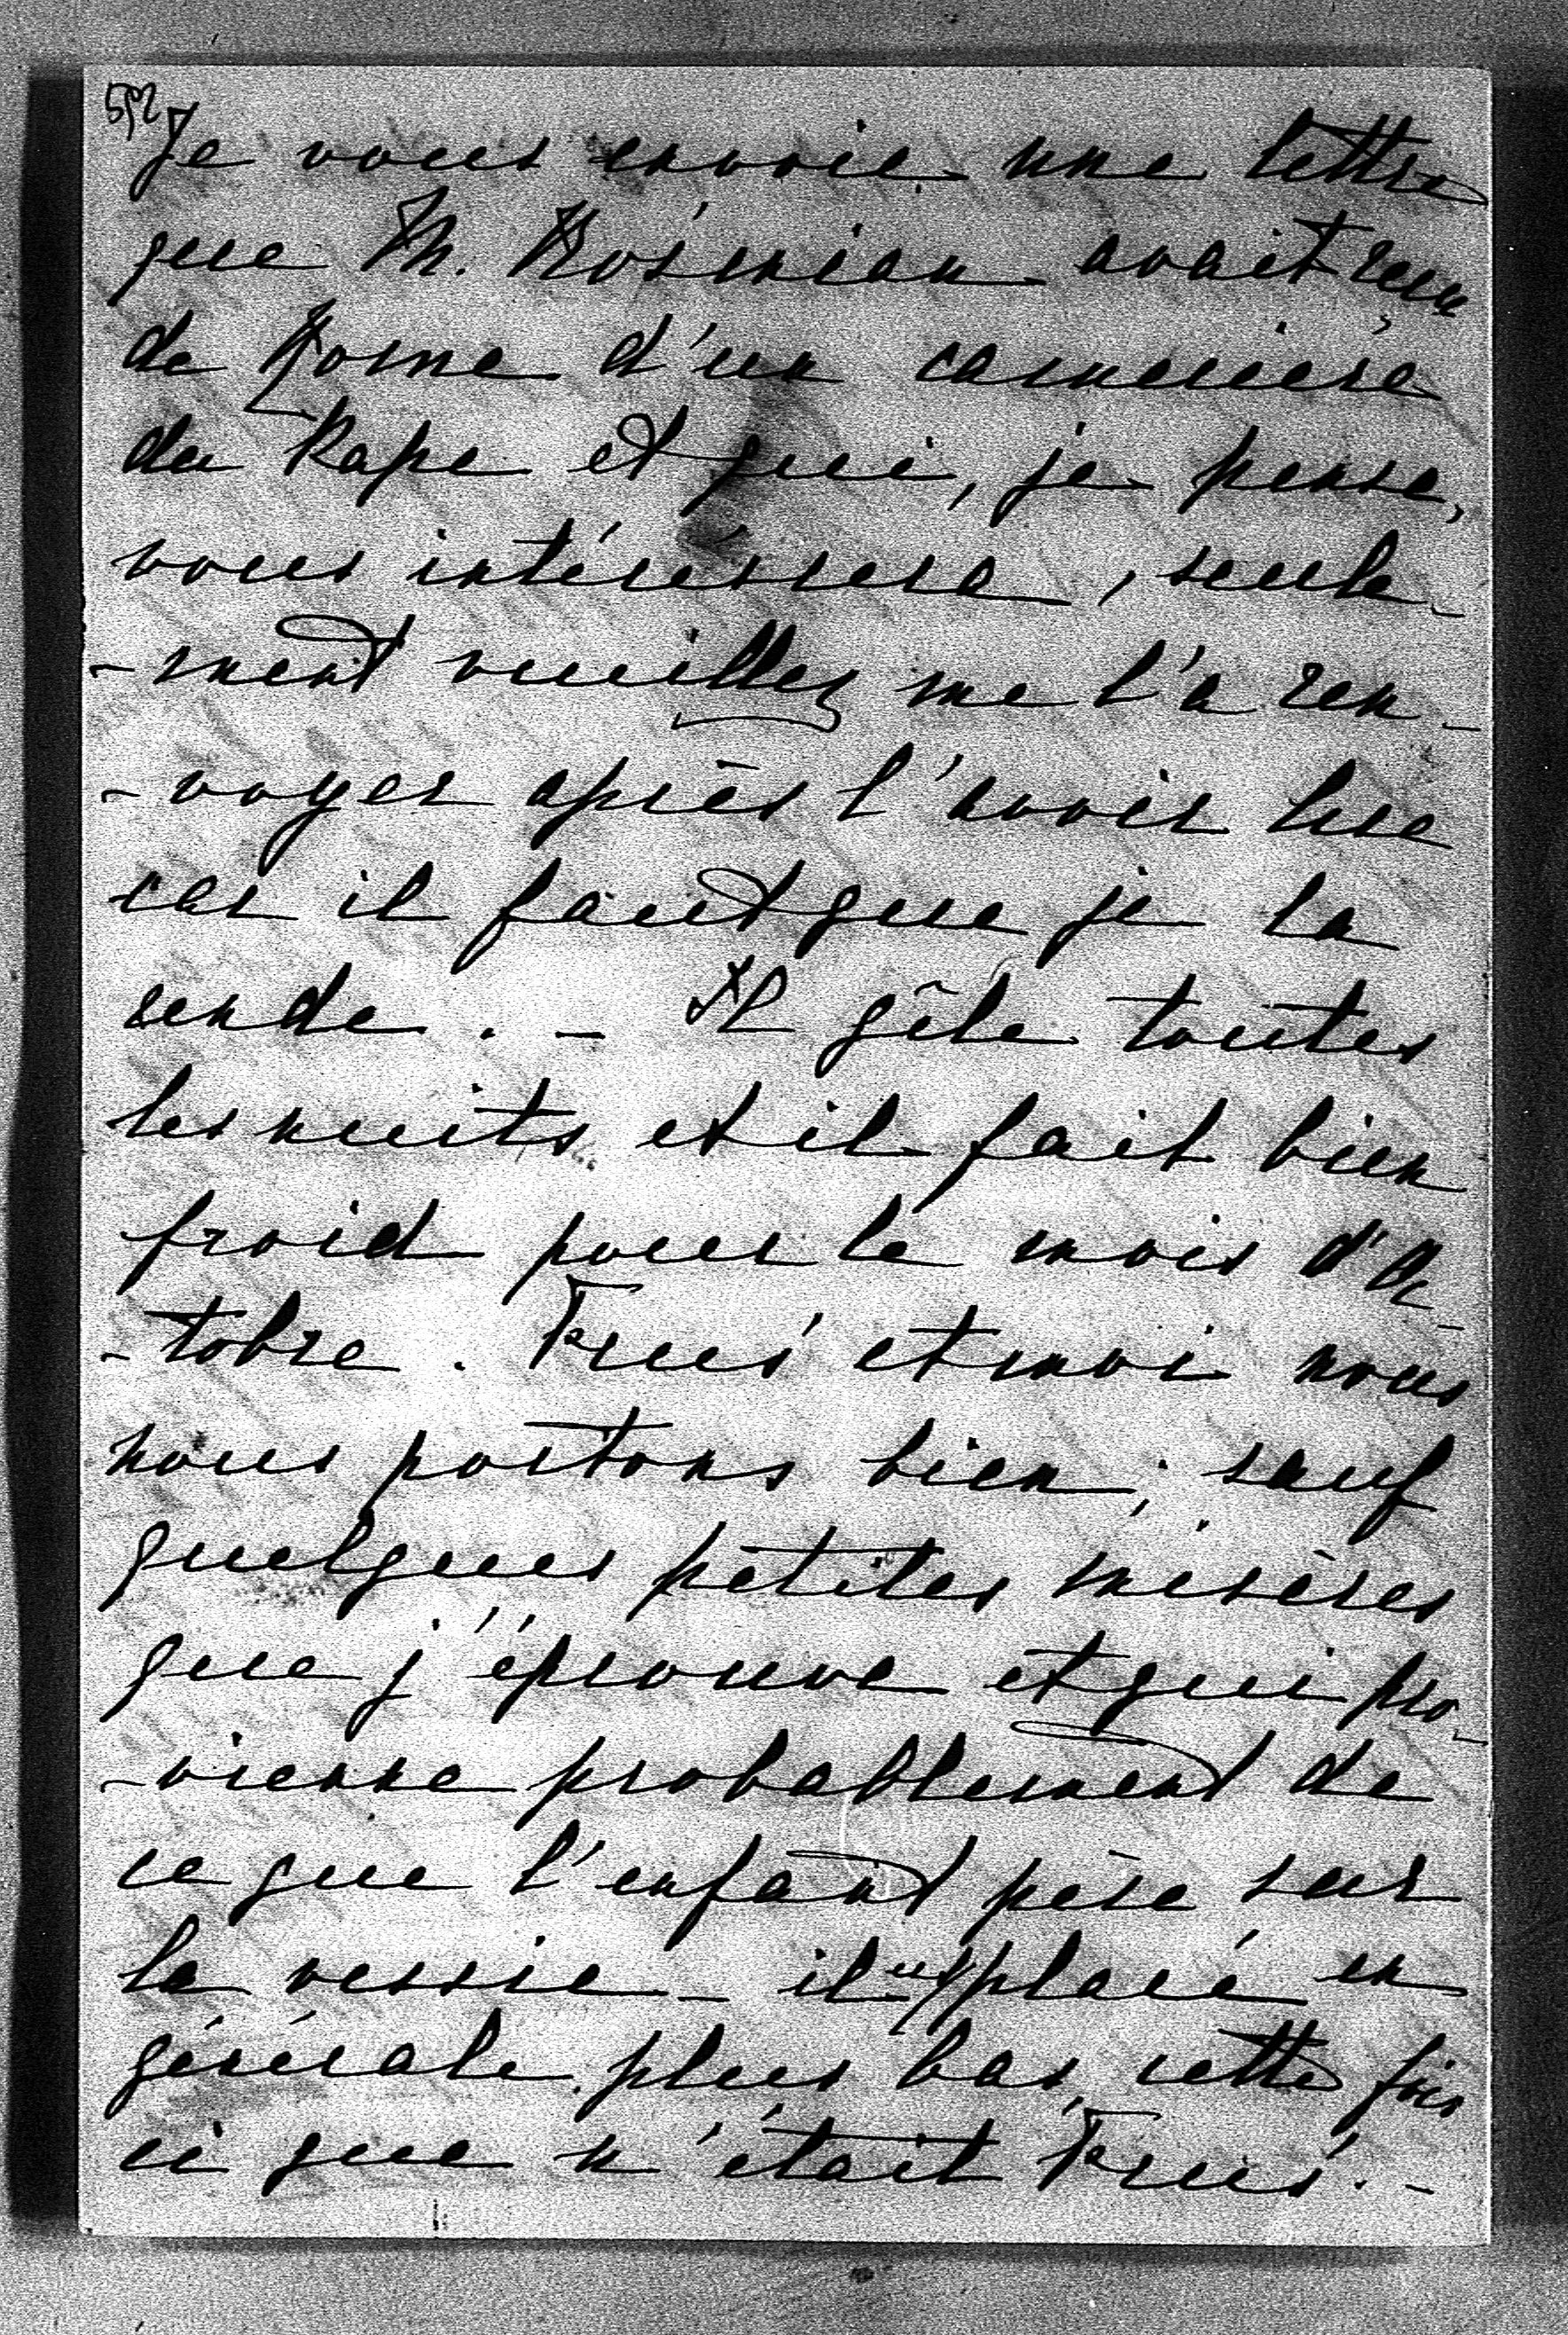 Je vous envoie une lettre
que M. Kosinian avait reçu
de Rome d'un camerière
du Pape et qui, je pense,
vous intéréssera, seule-
-ment veuillez me l'a ren-
-voyer après l'avoir lue
car il faut que je la
rende. - Il gêle toutes
les nuits et il fait bien
froid pour le mois d'Oc-
-tobre. et moi nous
nous portons bien, sauf
quelques petites misères
que j'éprouve et qui pro-
-vienne probablement de
ce que l'enfant pèse sur
la vessie - il est placé en
générale plus bas, cette fois
ci que n'était